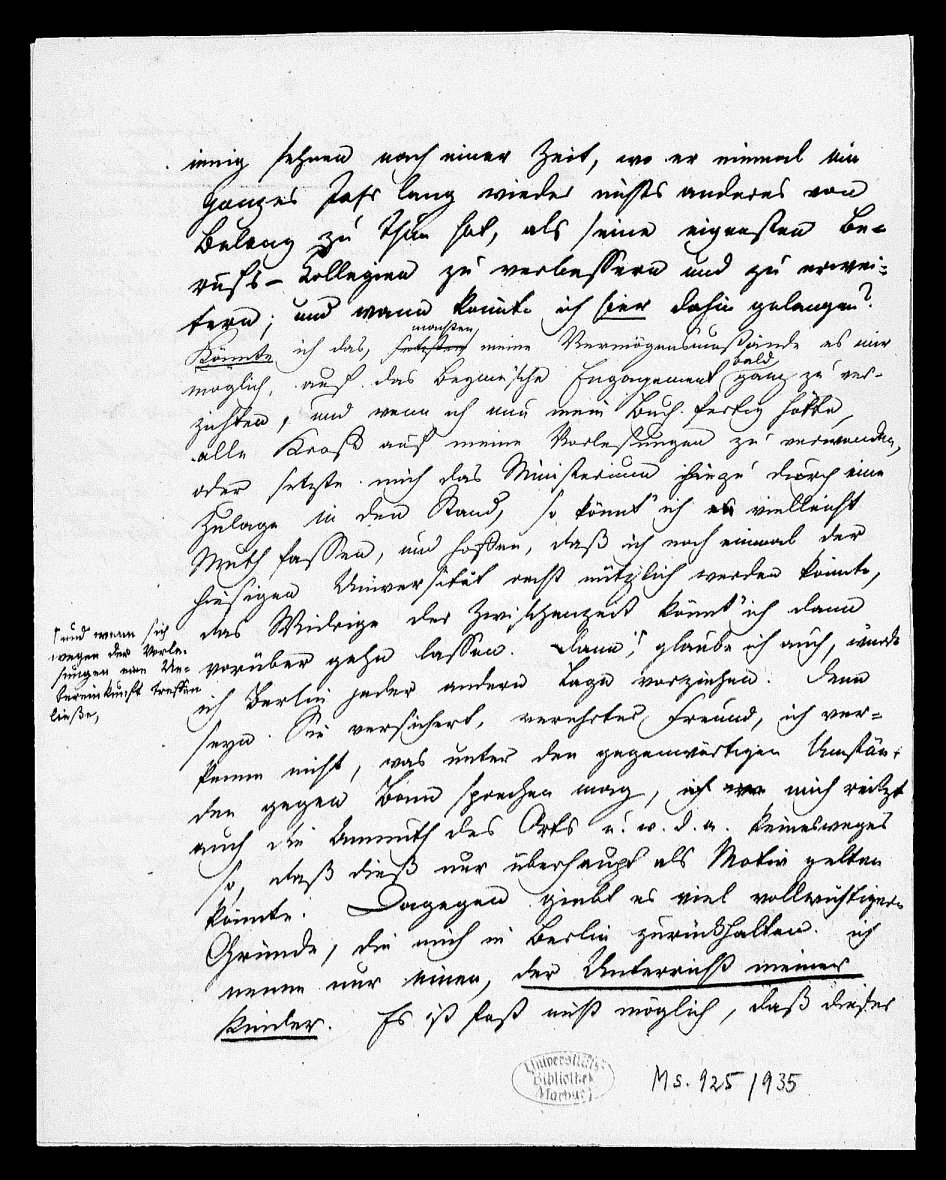 innig sehnen nach einer Zeit, wo er einmal ein
ganzes Jahr lang wieder nichts anderes von
Belang zu thun hat, als seine eigensten Be-
rufs-Collegien zu verbessern und zu erwei-
tern; und wann könnte ich hier dahin gelangen?
Könnte ich das, machten meine Vermögensumstände es mir
möglich, auf das Engagement bald ganz zu ver-
zichten, und wenn ich nun mein Buch fertig hätte,
alle Kraft auf meine Vorlesungen zu verwenden,
oder setzte mich das Ministerium hiezu durch eine
Zulage in den Stand, so könnt' ich vielleicht
Muth fassen, und hoffen, daß ich noch einmal der
hiesigen Universität recht nützlich werden könnte,
das Widrige der Zwischenzeit könnt' ich dann
vorüber gehn lassen. Dann, glaube ich auch, würde
und wenn sich
wegen der Vorle-
sungen eine Ue-
bereinkunft treffen
ließe,
ich Berlin jeder andern Lage vorziehen. Denn
seyn Sie versichert, verehrter Freund, ich ver-
kenne nicht, was unter den gegenwärtigen Umstän-
den gegen Bonn sprechen mag, mich reitzt
auch die Anmuth des Orts u. w. d. a. keinesweges
so, daß dieß nur überhaupt als Motiv gelten
könnte. Dagegen giebt es viel vollwichtigere
Gründe, die mich in Berlin zurückhalten. ich
nenne nur einen, der Unterricht meiner
Kinder. Es ist fast nicht möglich, daß dieser
Universitäts-
Bibliothek
Marburg
Ms. 925/935